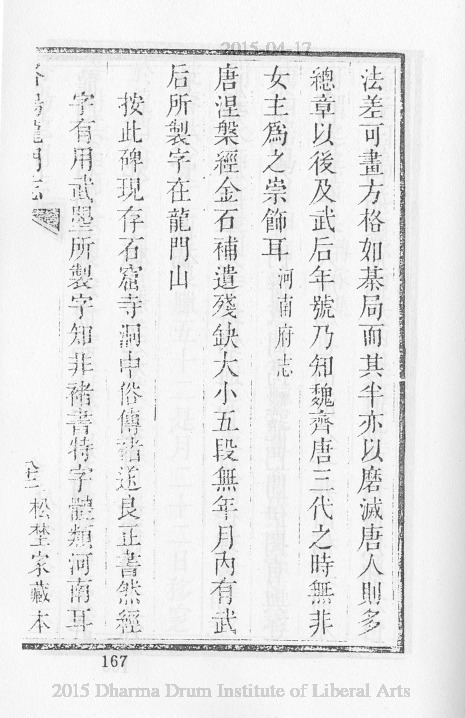 2015-04-17
法差可畫方格如棊局而其半亦以磨滅唐人則多
總章以後及武后年號乃知魏齊唐三代之時無非
女主爲之崇飾耳河南府志
唐涅槃經金石補遺殘缺大小五段無年月內有武
后所製字在龍門山
按此碑現存石窟寺洞中俗傳褚遂良正書然經
字有用武曌所製字知非褚書特字體類河南耳
洛陽龍門志
松埜家藏本
167
2015 Dharma Drum Institute of Liberal Arts